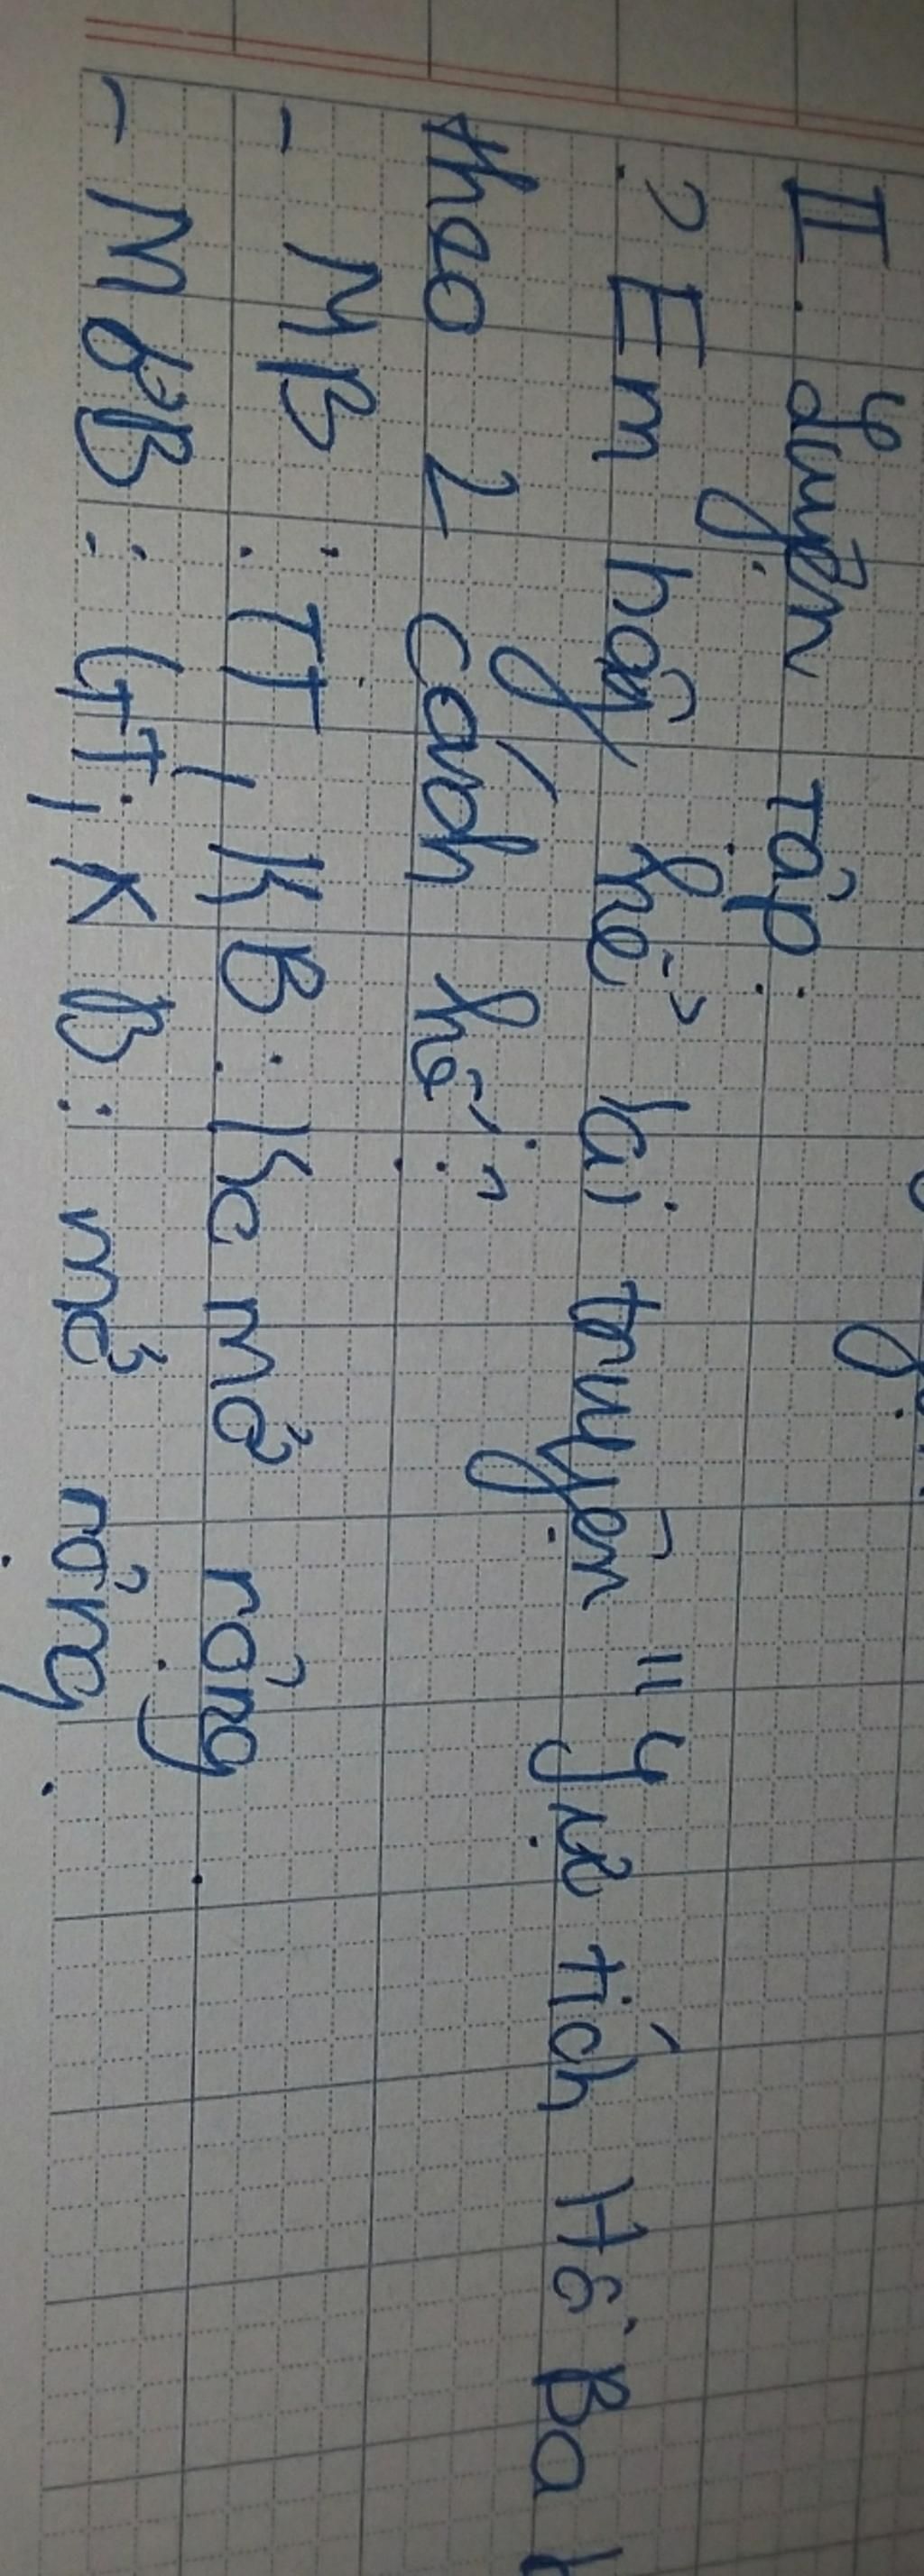 II. Luyện tập:
? Em hãy kể lại truyện "Sự tích Hồ Ba
theo 2 cách kể:
- MB: TT, KB: Ko mở rộng.
- MB: GT, KB: mở rộng.